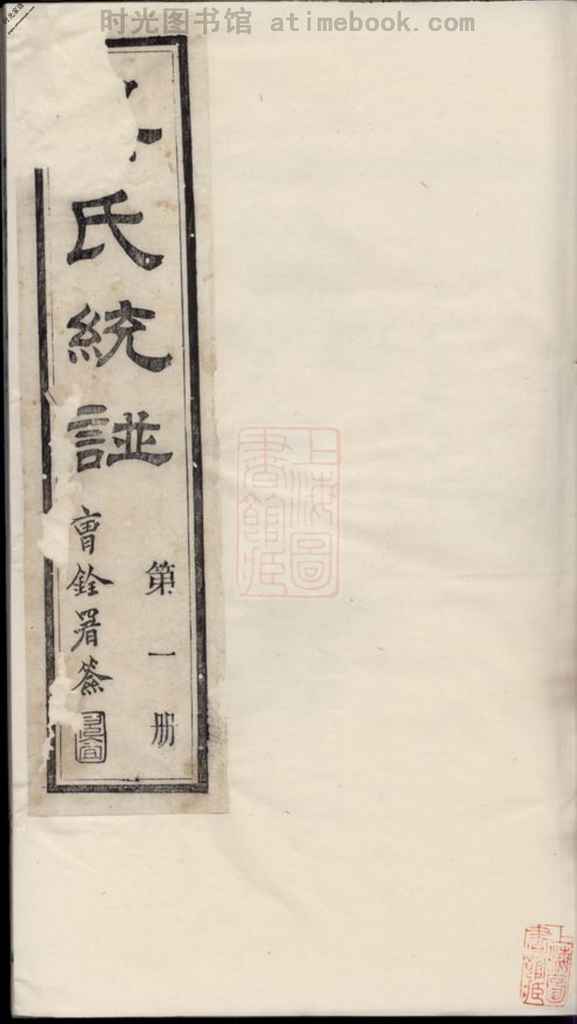 时光图书馆 atimebook.com
氏統譜
第一册
銓署簽
上海圖書館藏
上海圖書館藏